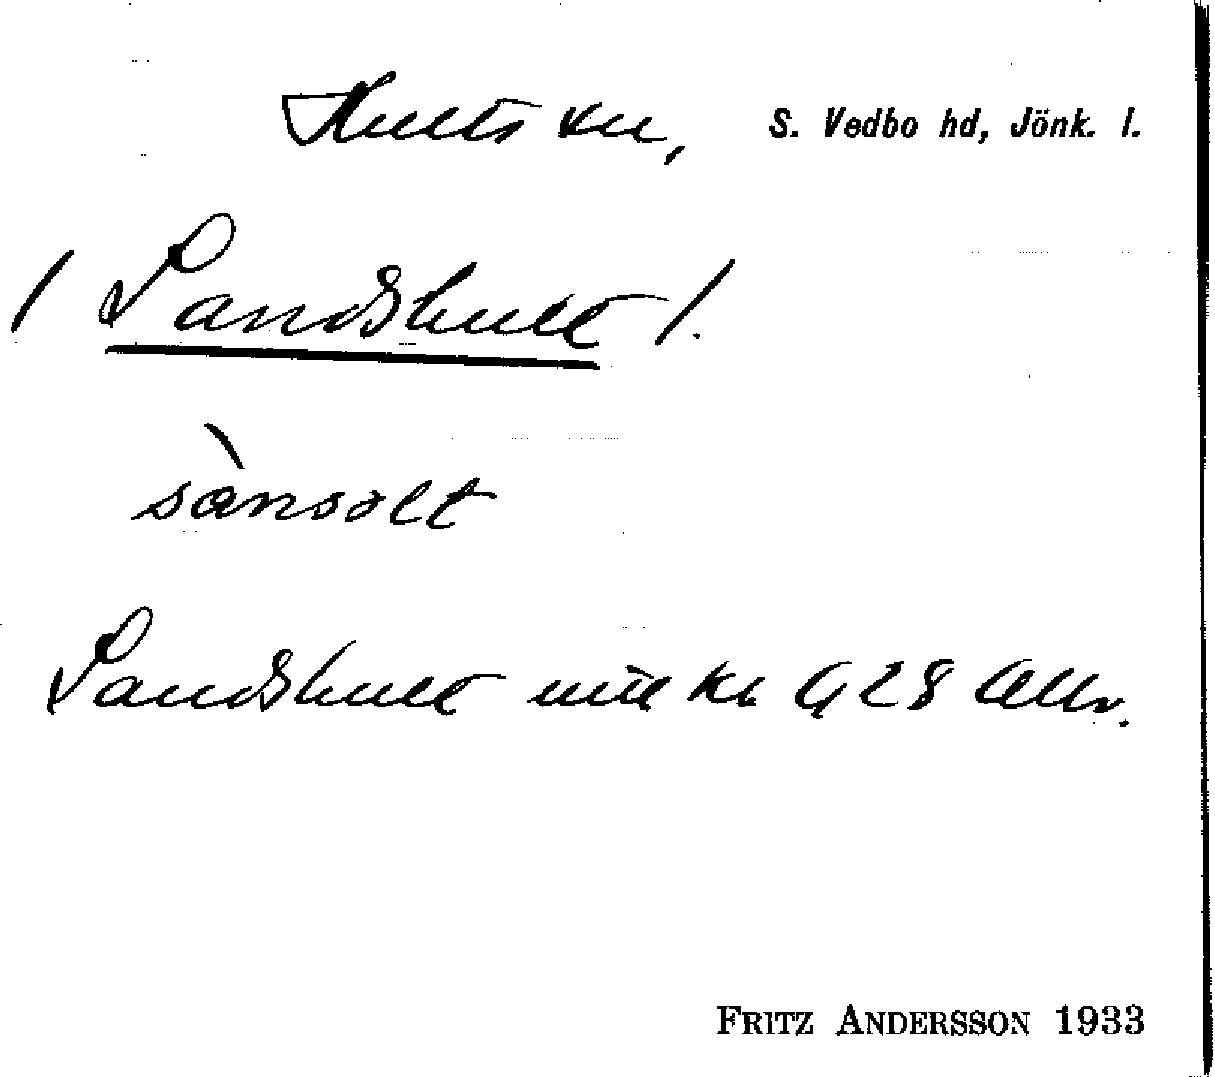 Hults sn, S. Vedbo hd, Jönk. l.
/ Sandshult /.
sànsolt
Sandshult mtl kr G 28 Allr.
FRITZ ANDERSSON 1933